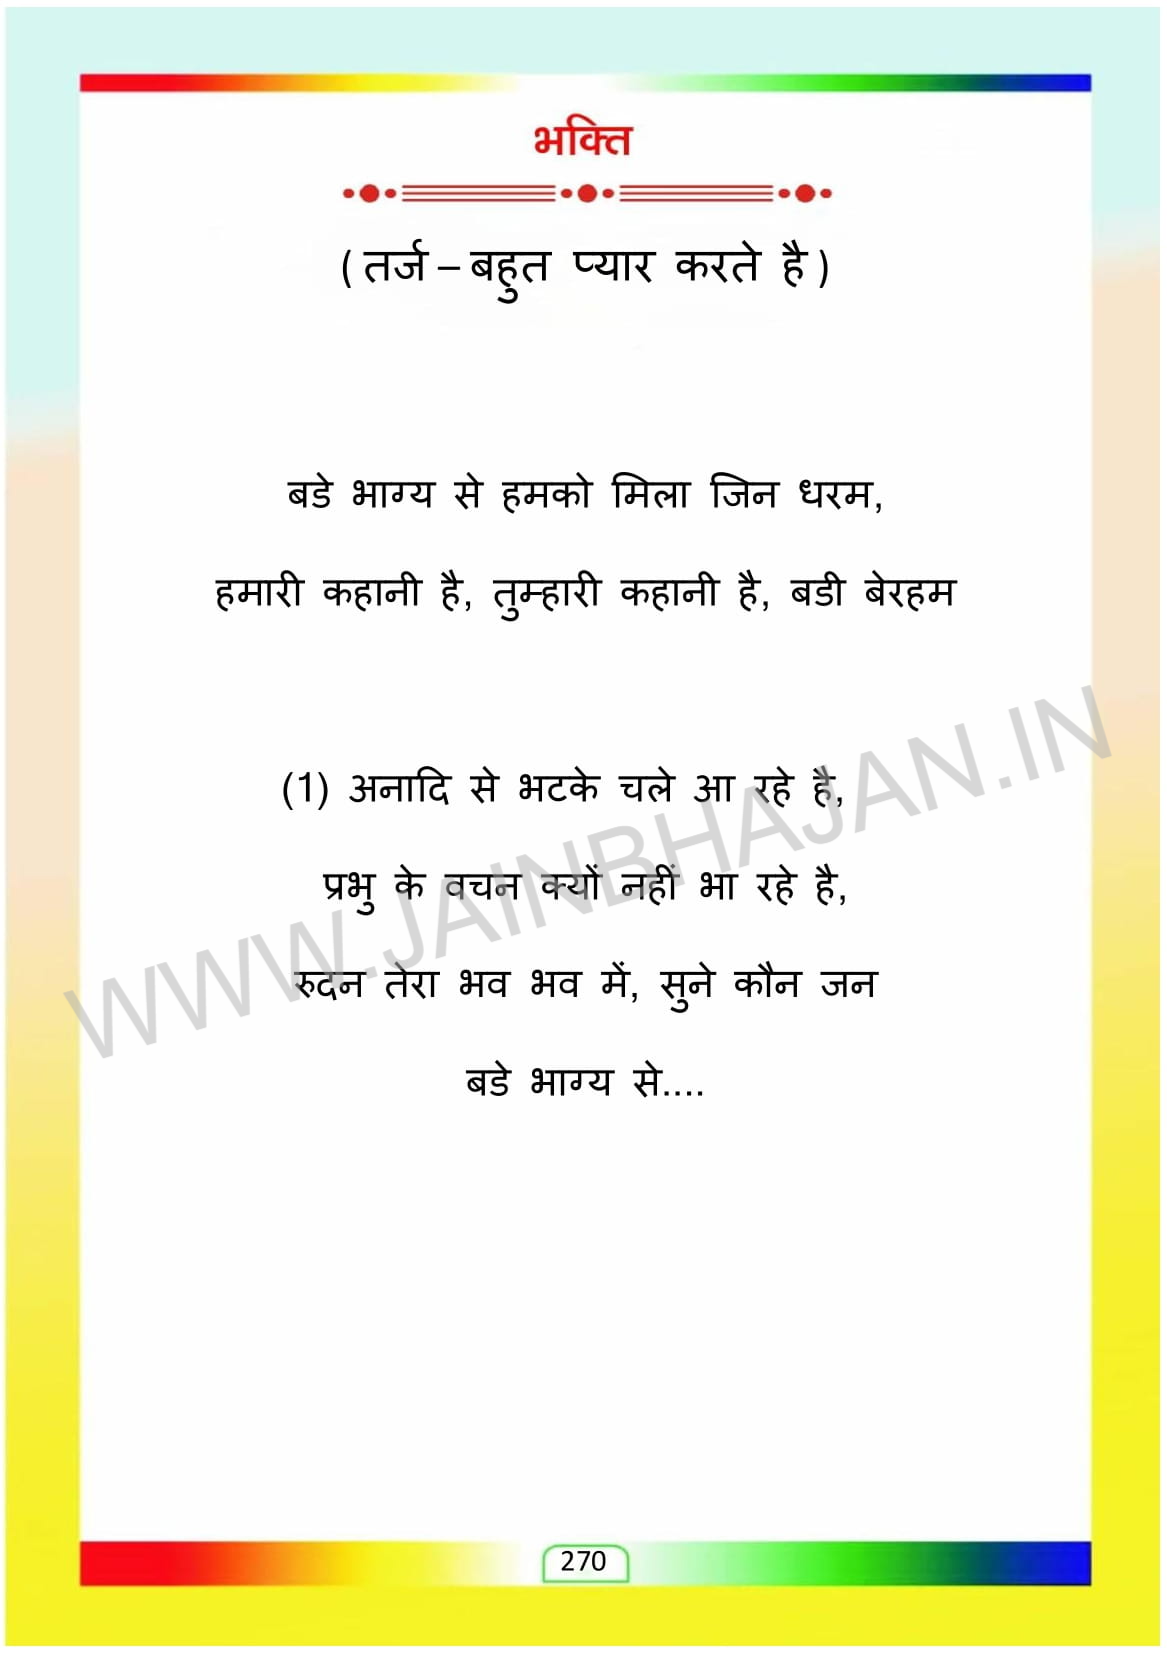 भक्ति
( तर्ज – बहुत प्यार करते है )
बडे भाग्य से हमको मिला जिन धरम,
हमारी कहानी है, तुम्हारी कहानी है, बडी बेरहम
(1) अनादि से भटके चले आ रहे है,
प्रभु के वचन क्यों नहीं भा रहे है,
रुदन तेरा भव भव में, सुने कौन जन
बडे भाग्य से....
WWW.JAINBHAJAN.IN
270